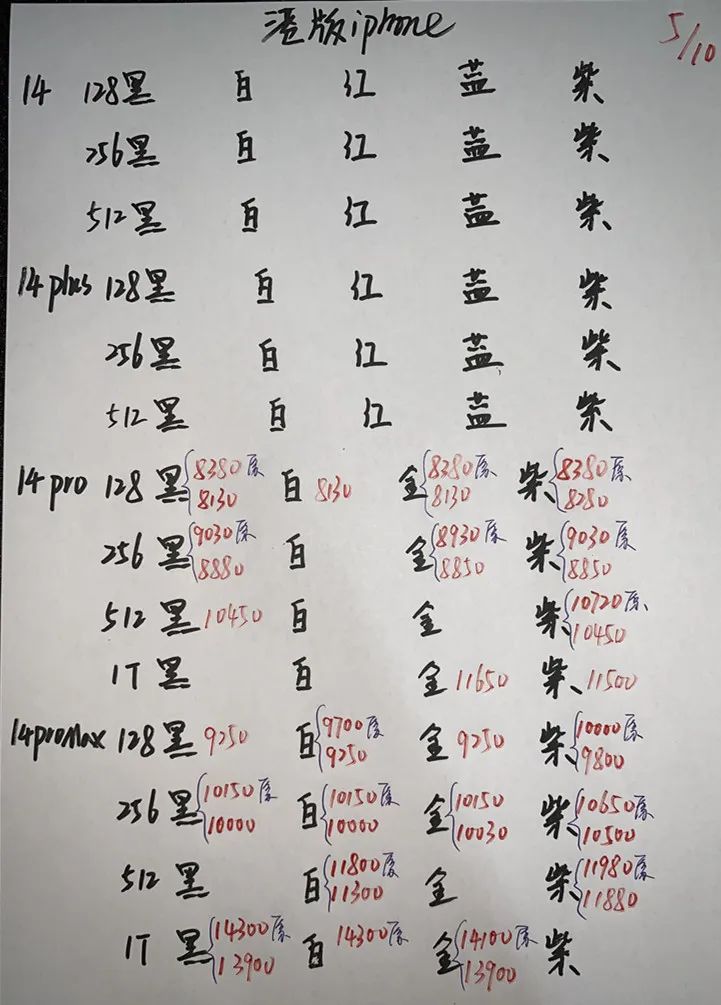 澄版iphone 5/10
14 128黑 白 红 蓝 柴
256黑 白 红 蓝 柴
512黑 白 红 蓝 柴
14plus 128黑 白 红 蓝 柴
256黑 白 红 蓝 柴
512黑 白 红 蓝 柴
14pro 128黑 8380原 白 8130 金 8380原 柴 8380原
8130 8130 8280
256黑 9030原 白 金 8930原 柴 9030原
8880 8850 8850
512黑 10450 白 金 柴 10720原
10450
1T黑 白 金 11650 柴 11500
14proMax 128黑 9250 白 9700原 金 9250 柴 10000原
9250 9800
256黑 10150原 白 10150原 金 10150原 柴 10650原
10000 10000 10030 10500
512黑 白 11800原 金 柴 11980原
11300 11880
1T黑 14300原 白 14300原 金 14100原 柴
13900 13900